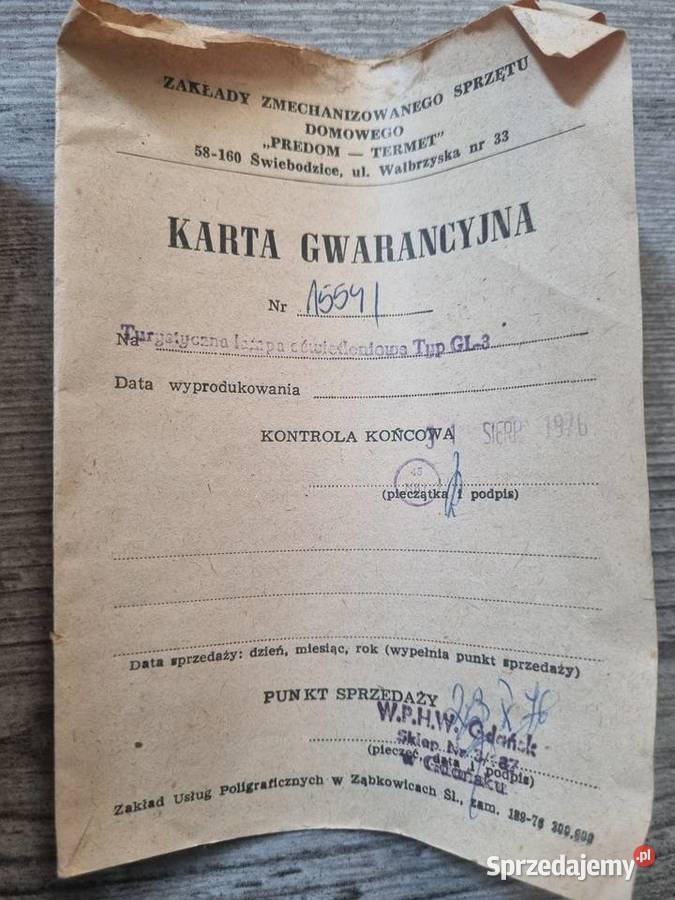 ZAKŁADY ZMECHANIZOWANEGO SPRZĘTU
DOMOWEGO
„PREDOM — TERMET”
58-160 Świebodzice, ul. Wałbrzyska nr 33
KARTA GWARANCYJNA
Nr 15541
Na Turystyczna lampa oświetleniowa Typ GL-3
Data wyprodukowania
KONTROLA KOŃCOWA 31 SIERP 1976
45
(pieczątka i podpis)
Data sprzedaży: dzień, miesiąc, rok (wypełnia punkt sprzedaży)
PUNKT SPRZEDAŻY 28 X 76
W.P.H.W. Gdańsk
Sklep Nr
(pieczęć, data i podpis)
w Gdańsku
Zakład Usług Poligraficznych w Ząbkowicach Śl., zam. 189-76 300.000
Sprzedajemy.pl